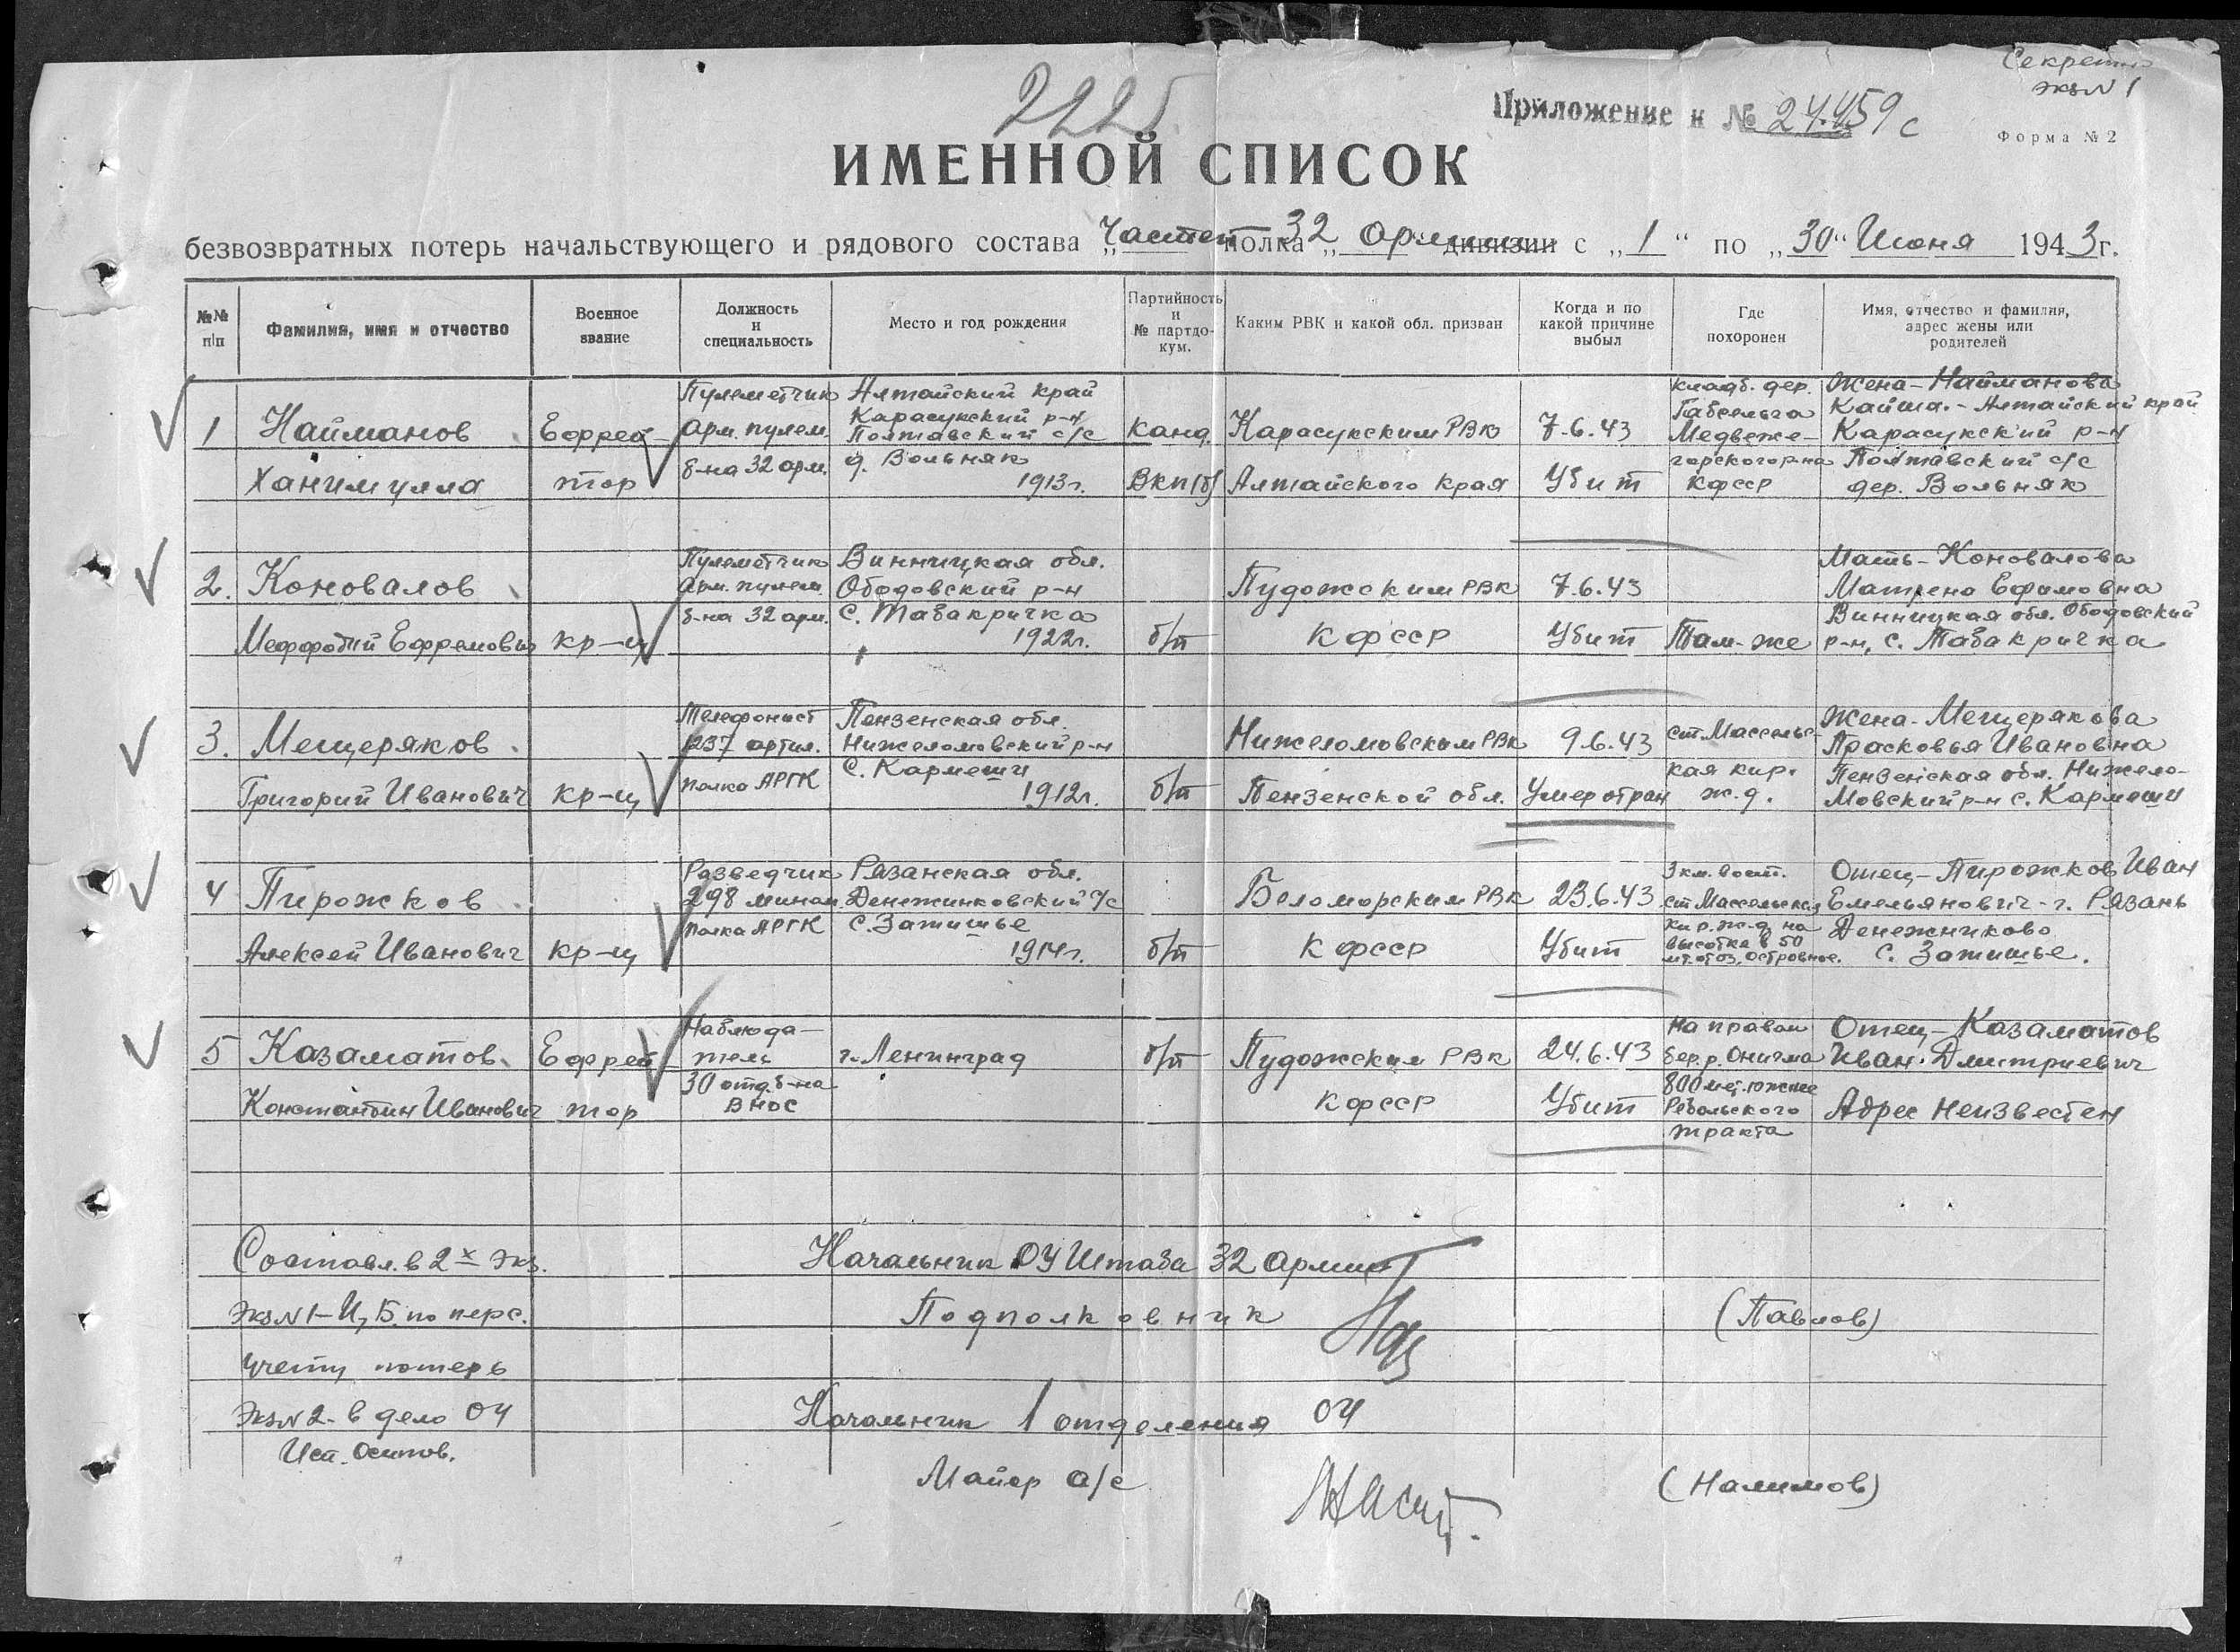 Секретно
экз N 1
2225
Приложение к № 24459с
Форма № 2
ИМЕННОЙ СПИСОК
безвозвратных потерь начальствующего и рядового состава „Частей полка „32 Армии“ дивизии с „1“ по „30“ Июня 1943г.
№№ п/п
Фамилия, имя и отчество
Военное звание
Должность и специальность
Место и год рождения
Партийность и № партдокум.
Каким РВК и какой обл. призван
Когда и по какой причине выбыл
Где похоронен
Имя, отчество и фамилия, адрес жены или родителей
1
Найманов
Ханимулла
Ефрей-
тор
Пулеметчик
Арм. пулем.
б-на 32 арм.
Алтайский край
Карасукский р-н
Полтавский с/с
д. Вольняк
1913г.
канд.
ВКП(б)
Карасукским РВК
Алтайского края
7.6.43
Убит
кладб. дер.
Габсельга
Медвеже-
горского р-на
КФССР
Жена - Найманова
Кайша. - Алтайский край
Карасукский р-н
Полтавский с/с
дер. Вольняк
2.
Коновалов
Меффодий Ефремович
кр-ц
Пулеметчик
Арм. пулем.
б-на 32 арм.
Винницкая обл.
Ободовский р-н
с. Табакричка
1922г.
б/п
Пудожским РВК
КФССР
7.6.43
Убит
Там-же
Мать - Коновалова
Матрена Ефимовна
Винницкая обл. Ободовский
р-н, с. Табакричка
3.
Мещеряков
Григорий Иванович
кр-ц
Телефонист
1237 артил.
полка АРГК
Пензенская обл.
Нижеломовский р-н
с. Кармеши
1912г.
б/п
Нижеломовским РВК
Пензенской обл.
9.6.43
Умер от ран
ст. Массельс-
кая кир.
ж.д.
Жена - Мещерякова
Прасковья Ивановна
Пензенская обл. Нижело-
мовский р-н с. Кармеши
4
Пирожков
Алексей Иванович
кр-ц
Разведчик
298 мином
полка АРГК
Рязанская обл.
Денежниковский с/с
с. Затишье
1914г.
б/п
Беломорским РВК
КФССР
23.6.43
Убит
3 км. вост.
ст. Массельская
кир. ж.д. на
высотке в 50
мт. от оз. Островное.
Отец - Пирожков Иван
Емельянович - г. Рязань
Денежниково
с. Затишье.
5
Казаматов
Константин Иванович
Ефрей
тор
Наблюда-
тель
30 отд. б-на
ВНОС
г. Ленинград
б/п
Пудожским РВК
КФССР
24.6.43
Убит
на правом
бер. р. Онигма
800 мет. южнее
Ребольского
тракта
Отец - Казаматов
Иван Дмитриевич
Адрес неизвестен
Составл. в 2х экз.
Экз N 1 - Ц.Б. по перс.
учету потерь
Экз N 2 - в дело ОУ
Исп. Осипов.
Начальник ОУ Штаба 32 Армии
Подполковник
(Павлов)
Начальник 1 отделения ОУ
Майор а/с
(Налимов)